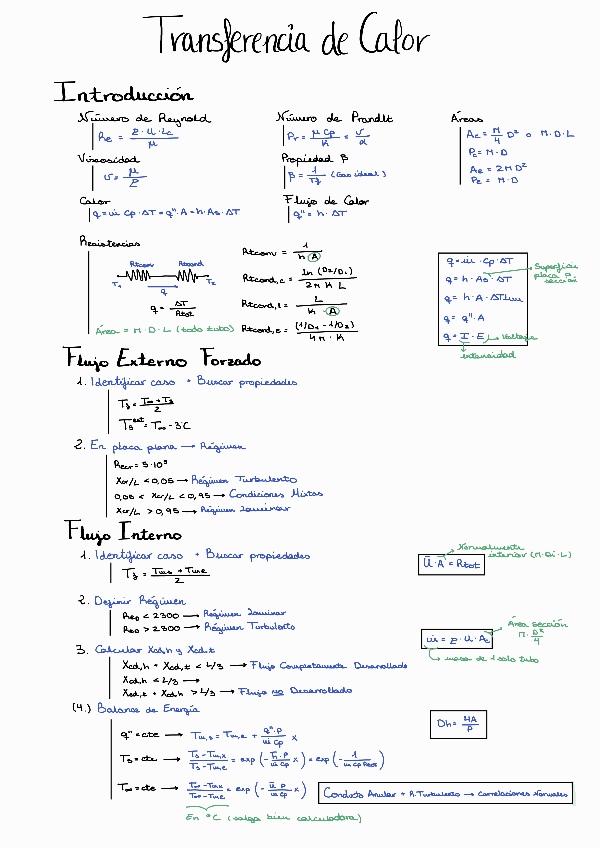 Transferencia de Calor
Introducción
Número de Reynold
Re = ρ·u·Lc / μ
Número de Prandlt
Pr = μ Cp / K = ν / α
Áreas
Ac = π/4 D² o π·D·L
Pc = π·D
Ae = 2πD²
Pe = π·D
Viscosidad
ν = μ / ρ
Propiedad β
β = 1 / Tf (Gas ideal)
Calor
q = ṁ Cp·ΔT = q"·A = h·As·ΔT
Flujo de Calor
q" = h·ΔT
Resistencias
Rtconv Rtcond
T₁ T₂
q
q = ΔT / Rtot
Área = π·D·L (todo tubo)
Rtconv = 1 / h A
Rtcond,c = ln (D₂/D₁) / 2π K L
Rtcond,l = L / K·A
Rtcond,e = (1/D₁ - 1/D₂) / 4π·K
q = ṁ·Cp·ΔT
q = h·As·ΔT
Superficie
placa o
sección
q = h·A·ΔTLm
q = q"·A
q = I·E Voltaje
intensidad
Flujo Externo Forzado
1. Identificar caso + Buscar propiedades
Tf = T∞ + Ts / 2
Ts^est = T∞ - 3C
2. En placa plana → Régimen
Recr = 5·10⁵
Xcr/L < 0,05 → Régimen Turbulento
0,05 < Xcr/L < 0,95 → Condiciones Mixtas
Xcr/L > 0,95 → Régimen Laminar
Flujo Interno
1. Identificar caso + Buscar propiedades
Tf = Tm,s + Tm,e / 2
Ū·A = Rtot
Normalmente
interior (π·Di·L)
2. Definir Régimen
ReD < 2300 → Régimen Laminar
ReD > 2300 → Régimen Turbulento
ṁ = ρ·u·Ac
Área sección
π·D²/4
masa de 1 solo tubo
3. Calcular Xcd,h y Xcd,t
Xcd,h + Xcd,t < L/3 → Flujo Completamente Desarrollado
Xcd,h < L/3 →
Xcd,t + Xcd,h > L/3 → Flujo no Desarrollado
(4.) Balance de Energía
Dh = 4A / P
q" = cte → Tm,s = Tm,e + q"·P / ṁ Cp x
Ts = cte → Ts - Tm,x / Ts - Tm,e = exp (- h̄·P / ṁ Cp x) = exp (- 1 / ṁ Cp Rtot)
T∞ = cte → T∞ - Tm,x / T∞ - Tm,e = exp (- Ū P / ṁ Cp x)
Conducto Anular + R.Turbulento → Correlaciones Normales
En °C (salga bien calculadora)